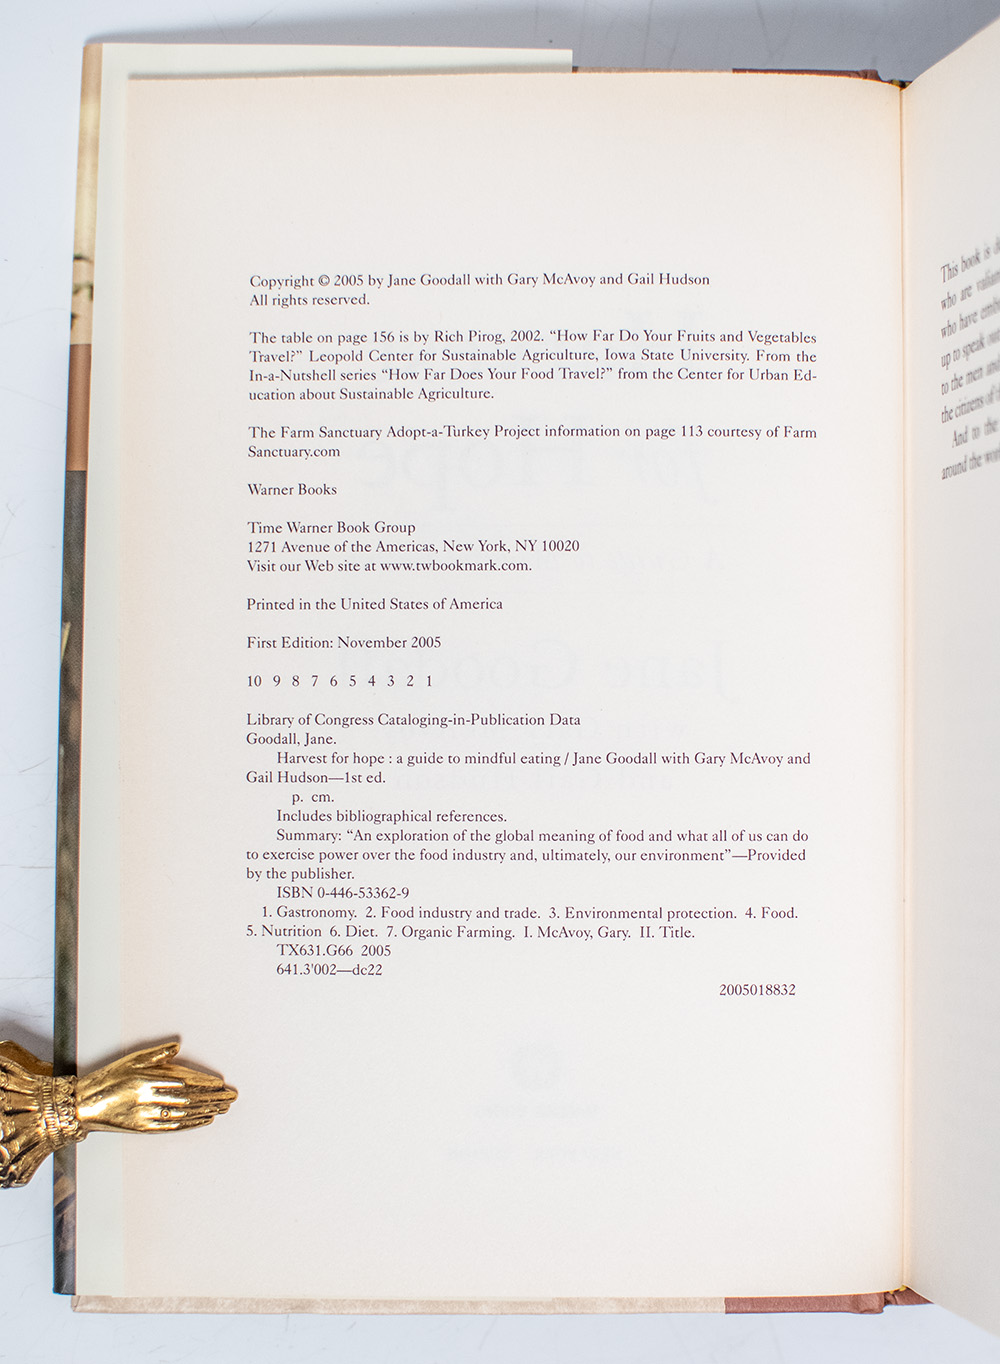 Copyright © 2005 by Jane Goodall with Gary McAvoy and Gail Hudson
All rights reserved.
The table on page 156 is by Rich Pirog, 2002. “How Far Do Your Fruits and Vegetables
Travel?” Leopold Center for Sustainable Agriculture, Iowa State University. From the
In-a-Nutshell series “How Far Does Your Food Travel?” from the Center for Urban Ed-
ucation about Sustainable Agriculture.
The Farm Sanctuary Adopt-a-Turkey Project information on page 113 courtesy of Farm
Sanctuary.com
Warner Books
Time Warner Book Group
1271 Avenue of the Americas, New York, NY 10020
Visit our Web site at www.twbookmark.com.
Printed in the United States of America
First Edition: November 2005
10 9 8 7 6 5 4 3 2 1
Library of Congress Cataloging-in-Publication Data
Goodall, Jane.
Harvest for hope : a guide to mindful eating / Jane Goodall with Gary McAvoy and
Gail Hudson—1st ed.
p. cm.
Includes bibliographical references.
Summary: “An exploration of the global meaning of food and what all of us can do
to exercise power over the food industry and, ultimately, our environment”—Provided
by the publisher.
ISBN 0-446-53362-9
1. Gastronomy. 2. Food industry and trade. 3. Environmental protection. 4. Food.
5. Nutrition 6. Diet. 7. Organic Farming. I. McAvoy, Gary. II. Title.
TX631.G66 2005
641.3'002—dc22
2005018832
This book is
who are
who have
up to speak
to the men
the citizens of
And to the
around the